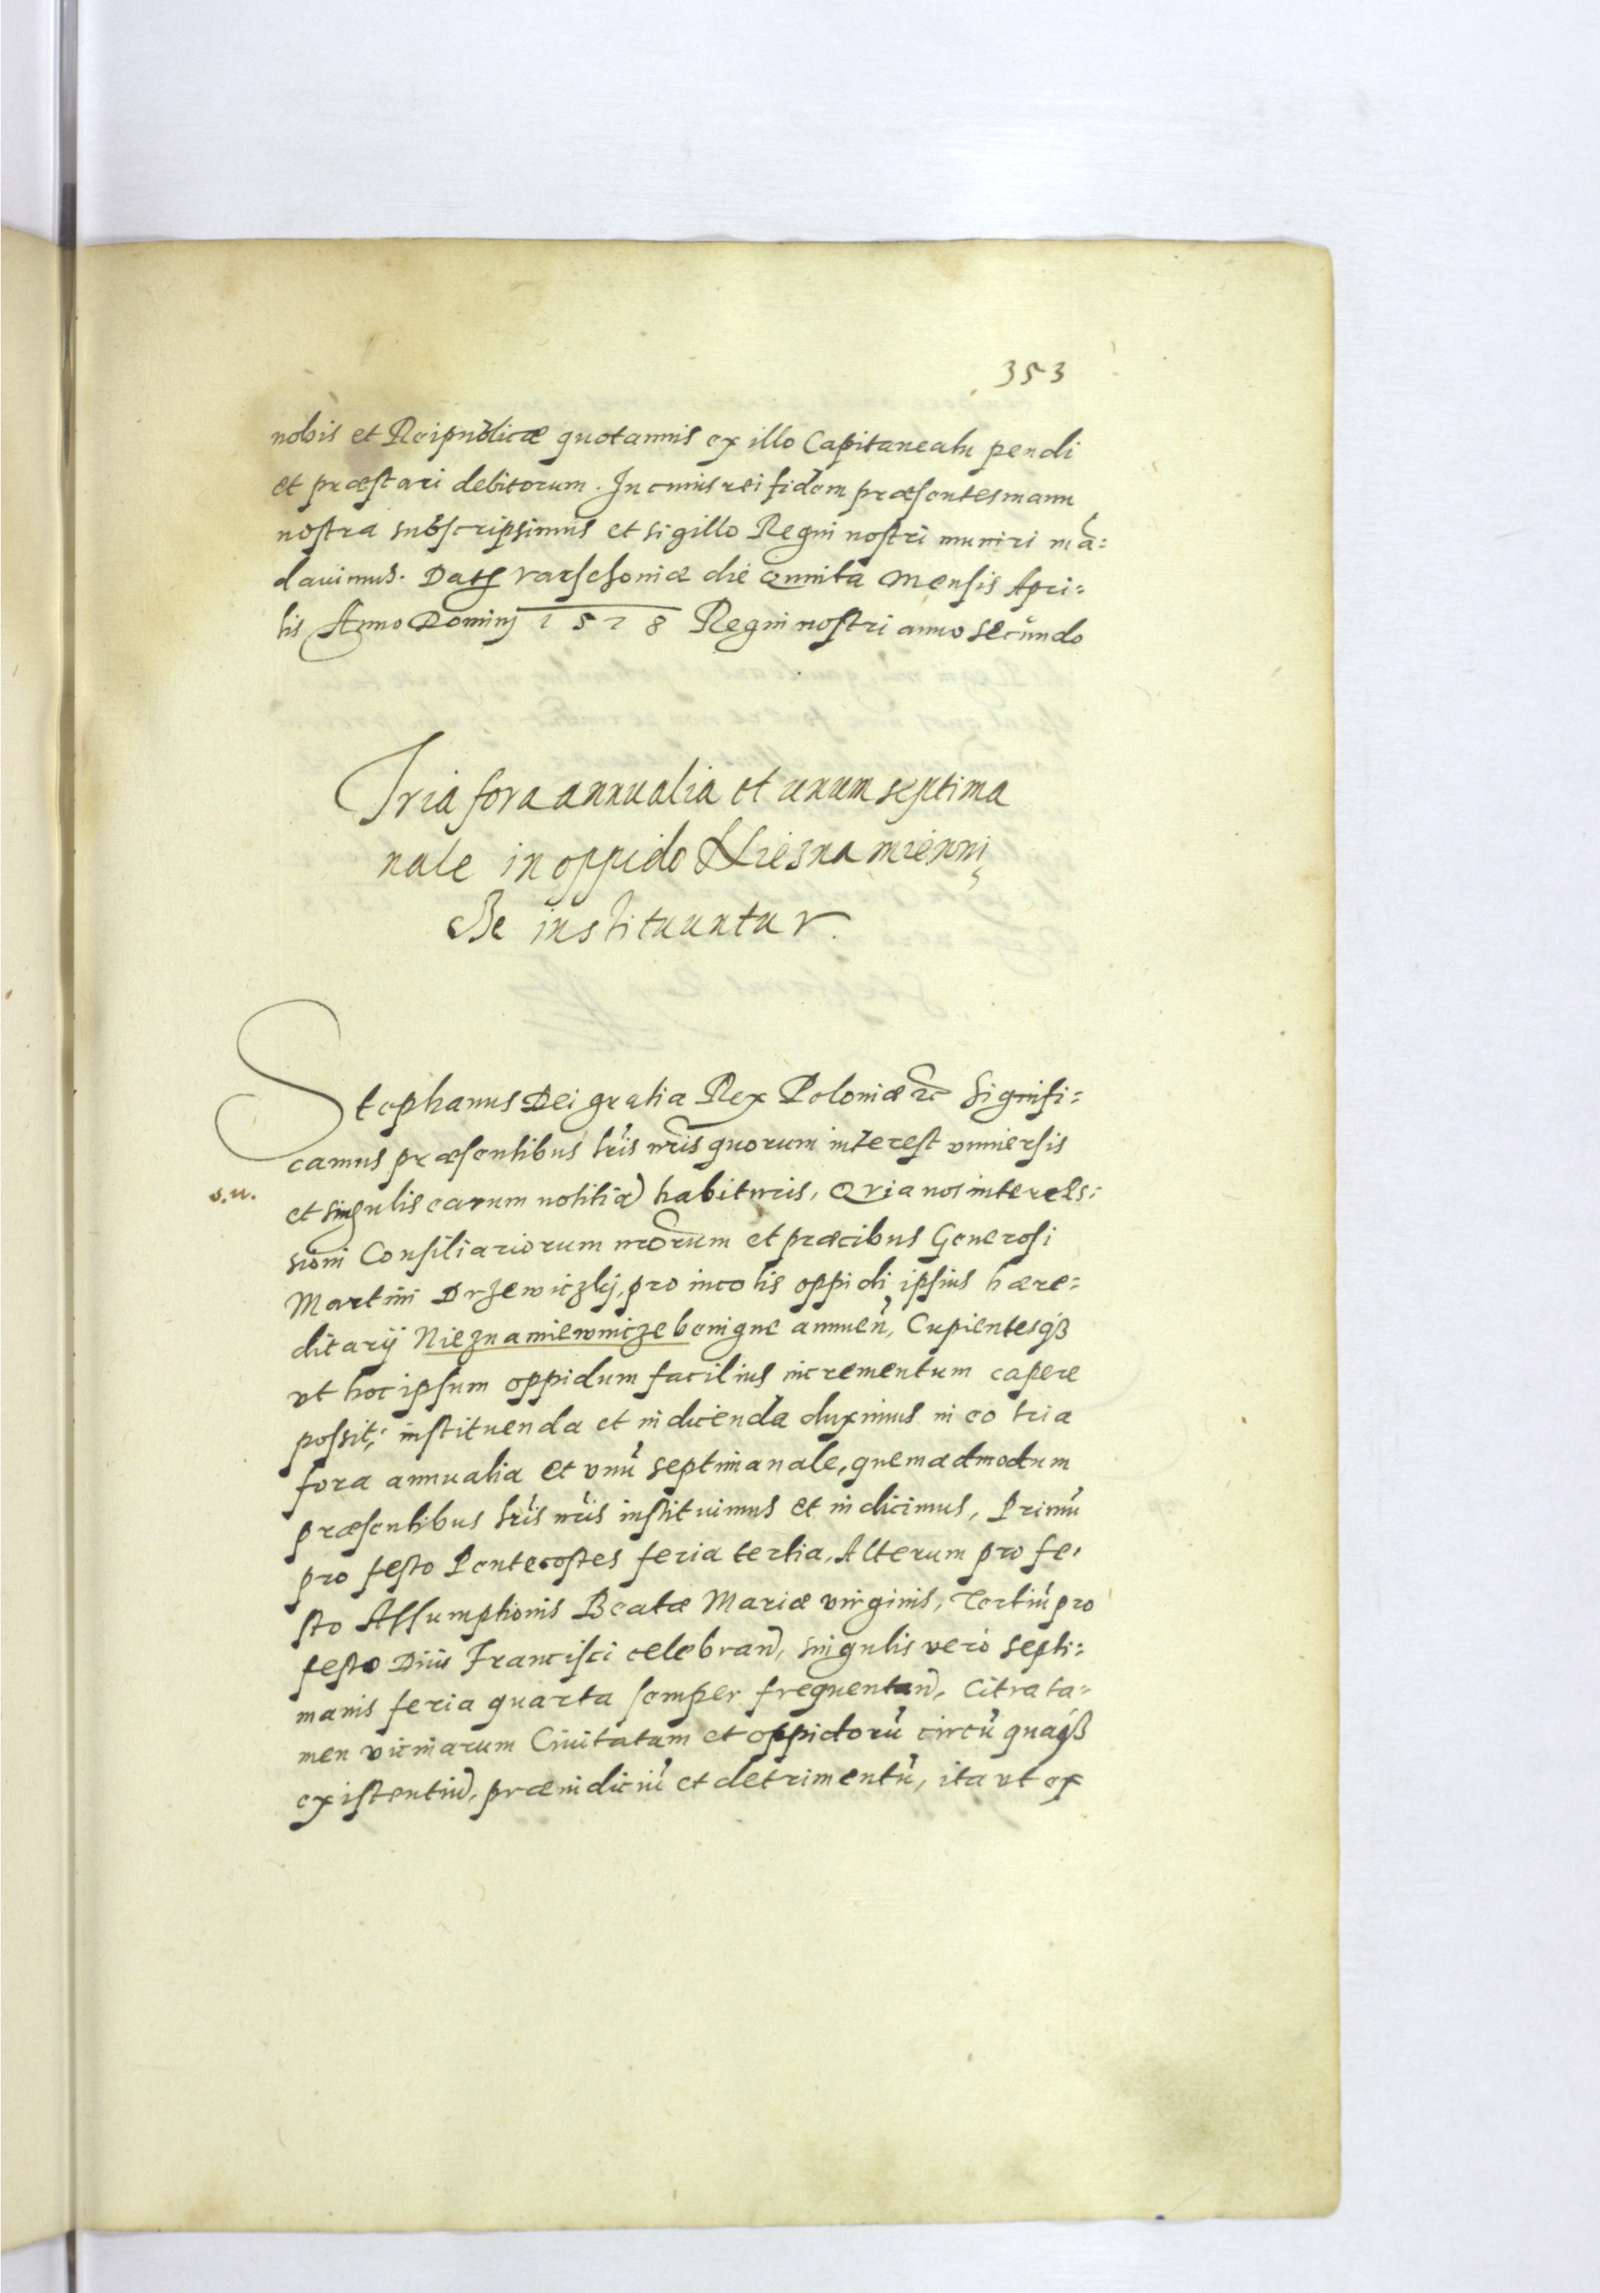 353
nobis et Reipublicæ quotannis ex illo Capitaneatu pendi
et præstari debitorum. In cuius rei fidem præsentes manu
nostra subscripsimus et sigillo Regni nostri muniri mã=
davimus. Varschoviæ die quinta Mensis Apri=
lis Anno Dominj 1578 Regni nostri anno secundo
Tria fora annualia et unum septima
nale in oppido Niesnamienni
cze instituuntur.
Stephanus Dei gratia Rex Poloniæ &c Signifi=
camus præsentibus lr̃is nr̃is quorum interest vniversis
s.u.
et singulis earum notitiã habituris, Quia nos interces=
sioni Consiliariorum nr̃orum et præcibus Generosi
Martini Drzewiczkj, pro incolis oppidi ipsius hære=
ditarij Nieznamiewnicze benigne annuen̄, Cupientesqß
vt hoc ipsum oppidum facilius incrementum capere
possit; instituenda et indicenda duximus in eo tria
fora annualia et vnũ septimanale, quemadmodum
præsentibus lr̃is nr̃is instituimus et indicimus, Primũ
pro festo Pentecostes feria tertia, Alterum pro fe=
sto Assumptionis Beatæ Mariæ virginis, Tertiũ pro
festo Divi Francisci celebran̄, singulis verò septi=
manis feria quarta semper frequentan̄, Citra ta=
men vicinarum Civitatum et oppidorũ circũ quaqß
existentiũ, præiudiciũ et detrimentũ, ita vt ex